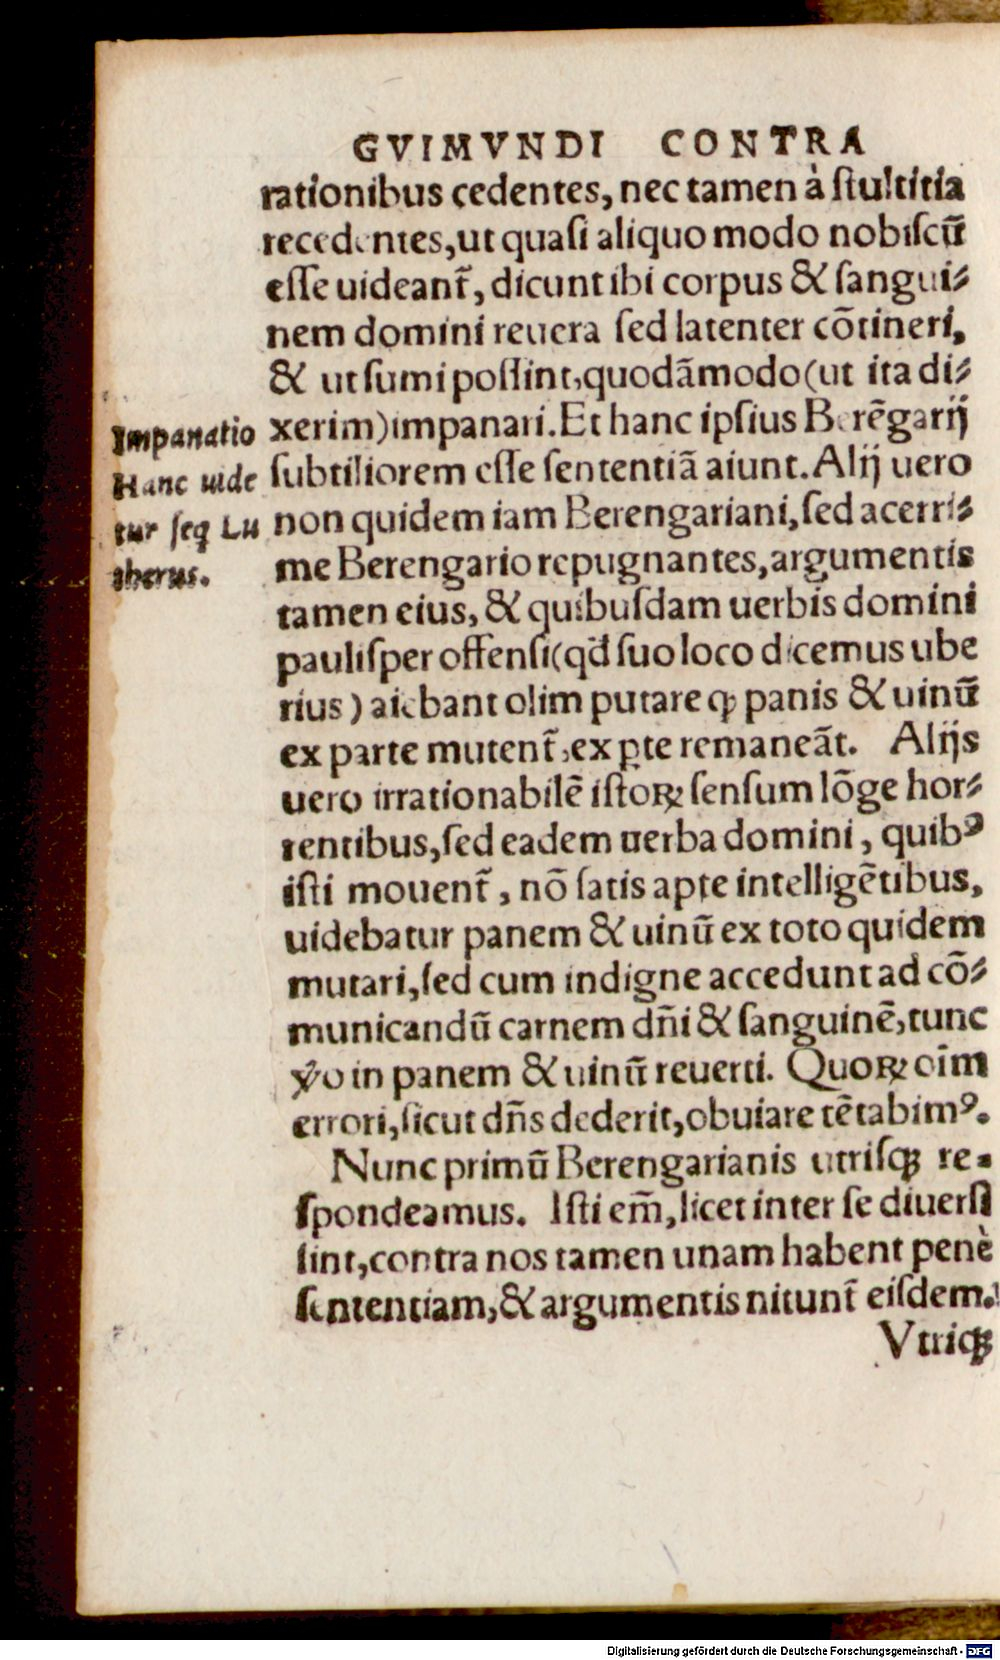 GVIMVNDI CONTRA
rationibus cedentes, nec tamen à ſtultitia
recedentes, ut quaſi aliquo modo nobiſcū
eſſe uideant̃, dicunt ibi corpus & ſangui⸗
nem domini reuera ſed latenter cōtineri,
& ut ſumi poſſint, quodāmodo (ut ita di⸗
xerim) impanari. Et hanc ipſius Berēgarij
ſubtiliorem eſſe ſententiā aiunt. Alij uero
non quidem iam Berengariani, ſed acerri⸗
me Berengario repugnantes, argumentis
tamen eius, & quibuſdam uerbis domini
pauliſper offenſi (qd̃ ſuo loco dicemus ube
rius) aiebant olim putare ꝙ panis & uinū
ex parte mutent̃, ex ꝑte remaneāt. Alijs
uero irrationabilē iſtoꝝ ſenſum lōge hor⸗
rentibus, ſed eadem uerba domini, quibꝰ
iſti mouent̃, nō ſatis apte intelligētibus,
uidebatur panem & uinū ex toto quidem
mutari, ſed cum indigne accedunt ad cō⸗
municandū carnem dñi & ſanguinē, tunc
ỽo in panem & uinū reuerti. Quoꝝ oim̄
errori, ſicut dñs dederit, obuiare tētabimꝰ.
Nunc primū Berengarianis utriſqꝫ re⸗
ſpondeamus. Iſti em̃, licet inter ſe diuerſi
ſint, contra nos tamen unam habent penè
ſententiam, & argumentis nitunt̃ eiſdem.
Vtriqꝫ
Impanatio
Hanc uide
tur ſeq̃ Lu
therus.
Digitalisierung gefördert durch die Deutsche Forschungsgemeinschaft - DFG